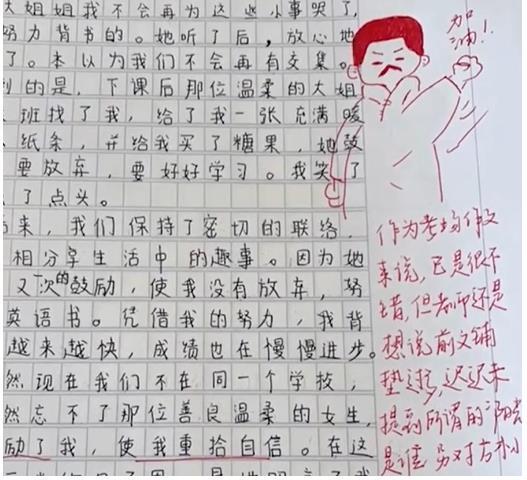 大姐姐我不会再为这些小事哭了，
努力背书的。她听了后，放心地
了。本以为我们不会再有交集。
的是，下课后那位温柔的大姐
班找了我，给了我一张充满暖
纸条，并给我买了糖果，她鼓
要放弃，要好好学习。我笑了
了点头。
来，我们保持了密切的联络，
相分享生活中的趣事。因为她
又一次的鼓励，使我没有放弃，努
英语书。凭借我的努力，我背
越来越快，成绩也在慢慢进步。
然现在我们不在同一个学校，
然忘不了那位善良温柔的女生，
励了我，使我重拾自信。在这
加油！！
作为考场作文
来说，已是很不
错，但老师还是
想说前文铺
垫过多，迟迟未
提到所谓的“阳光”
是谁